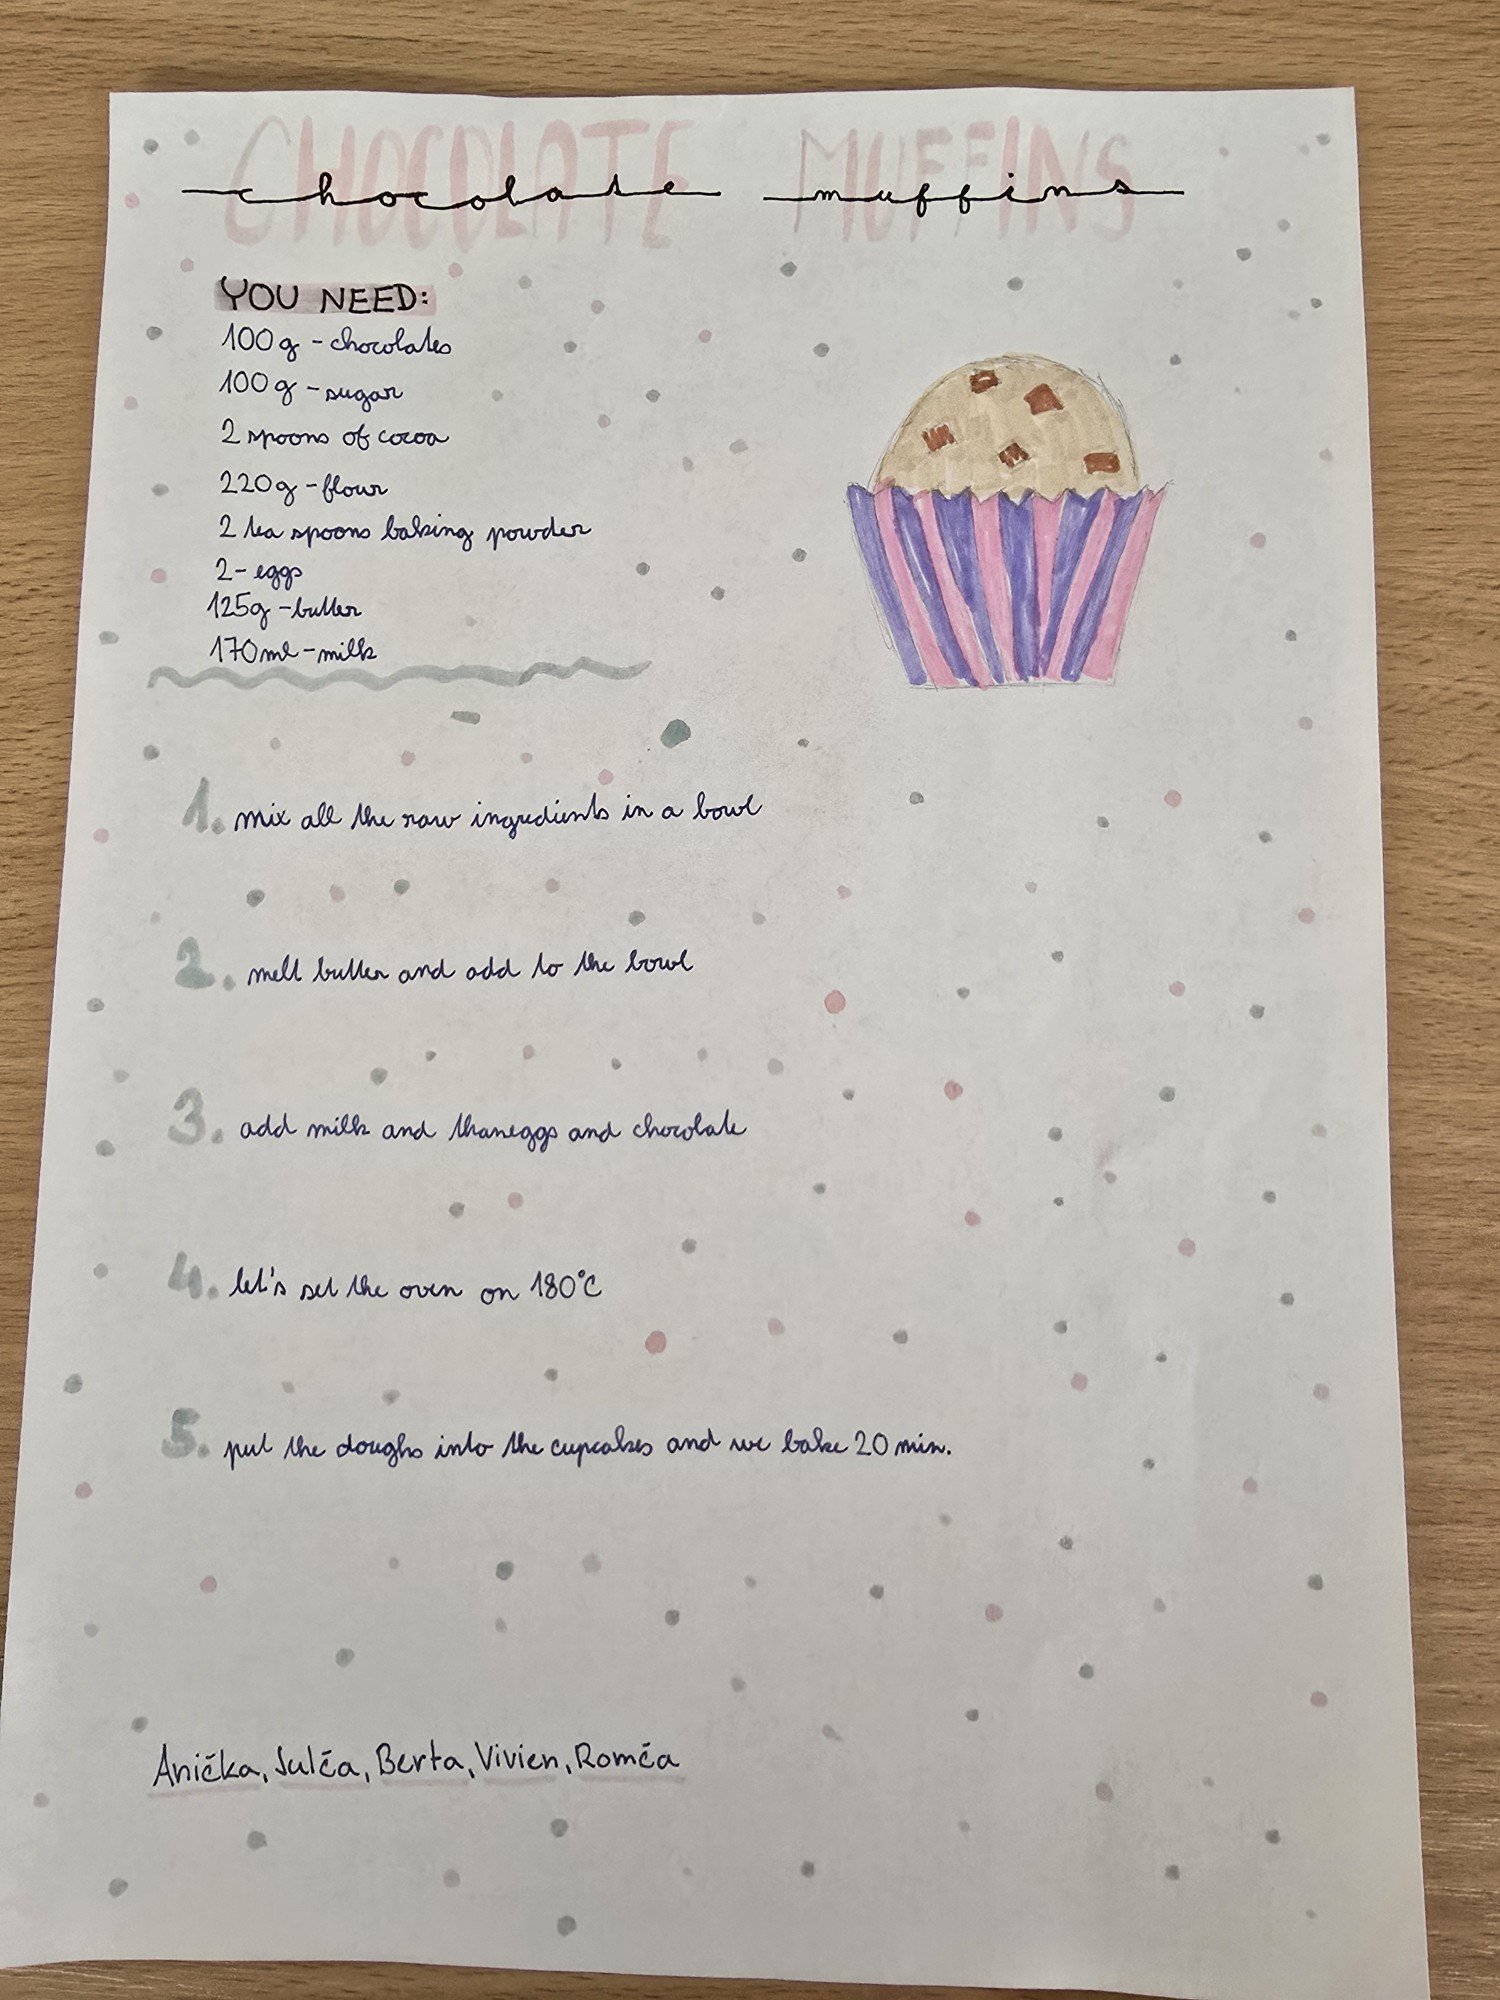 CHOCOLATE MUFFINS
chocolate muffins
YOU NEED:
100g - chocolates
100g - sugar
2 spoons of cocoa
220g - flour
2 tea spoons baking powder
2 - eggs
125g - butter
170ml - milk
1. mix all the raw ingredients in a bowl
2. melt butter and add to the bowl
3. add milk and than eggs and chocolate
4. let's set the oven on 180°C
5. put the doughs into the cupcakes and we bake 20 min.
Anička, Julča, Berta, Vivien, Romča